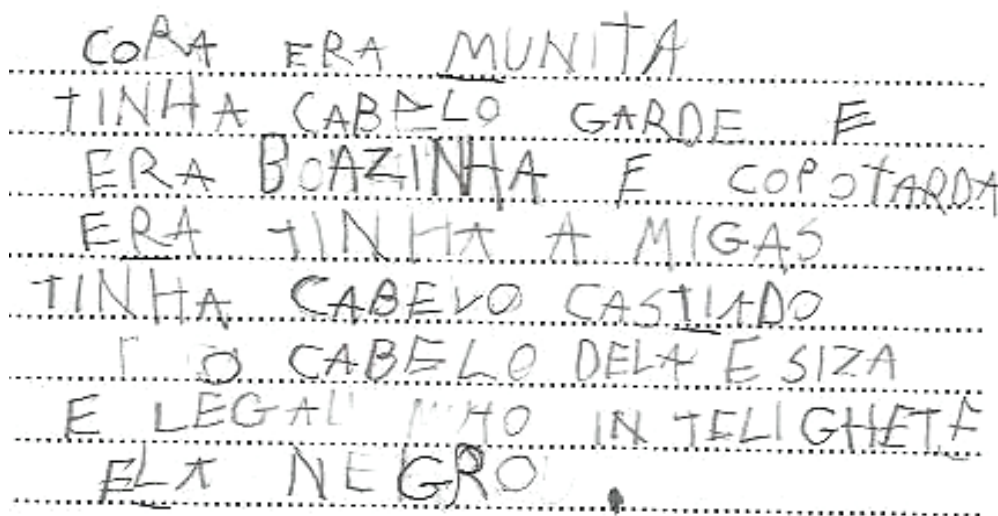 CORA ERA MUNITA
TINHA CABELO GARDE E
ERA BOAZINHA E COPOTARDA
ERA TINHA A MIGAS
TINHA CABEVO CASTIADO
O CABELO DELA E SIZA
E LEGAU INTELIGHETE
ELA NEGRO.